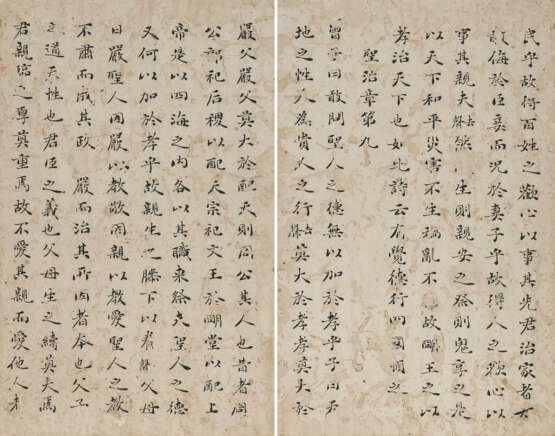 民乎故得百姓之歡心以事其先君治家者不
敢侮於臣妾而況於妻子乎故得人之歡心以
事其親夫然生則親安之祭則鬼享之是
以天下和平災害不生禍亂不故明王之以
孝治天下也如此詩云有覺德行四國順之
聖治章第九
曾子曰敢問聖人之德無以加於孝乎子曰天
地之性人為貴人之行莫大於孝孝莫大於
嚴父嚴父莫大於配天則周公其人也昔者周
公郊祀后稷以配天宗祀文王於明堂以配上
帝是以四海之內各以其職來祭夫聖人之德
又何以加於孝乎故親生之膝下以養父母
日嚴聖人因嚴以教敬因親以教愛聖人之教
不肅而成其政嚴而治其所因者本也父子
之道天性也君臣之義也父母生之績莫大焉
君親臨之尊莫重焉故不愛其親而愛他人者